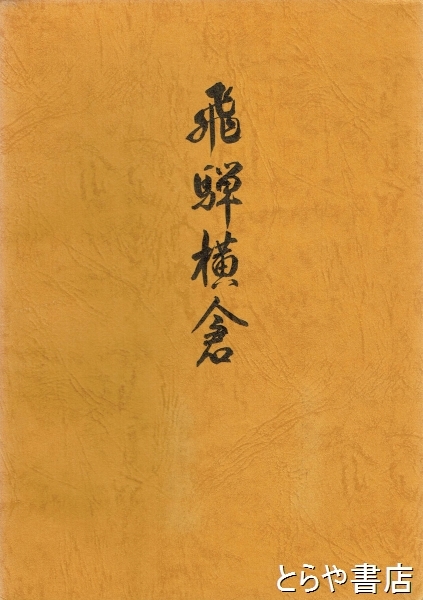 飛騨横倉
とらや書店